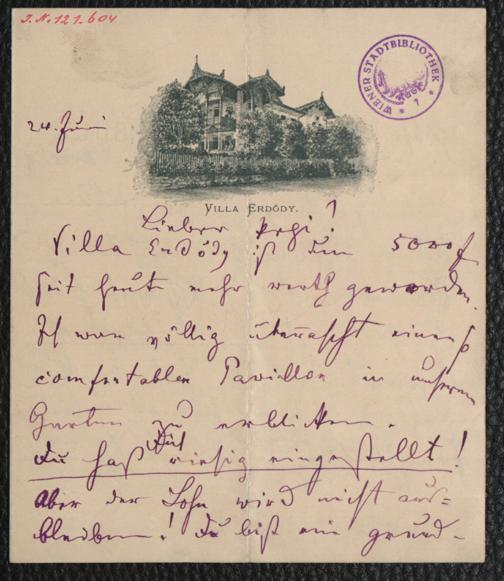 J.N. 121.604
WIENER STADTBIBLIOTHEK
24. Juni
VILLA ERDÖDY.
Lieber !
Villa Erdödy ist um 5000 f
seit heute mehr werth geworden.
Ich war völlig überrascht einen
comfortablen Pavillon in unserem
Garten zu erblicken.
Du hast Dich riesig eingestellt!
Aber der Lohn wird nicht aus=
bleiben! Du bist ein grund-